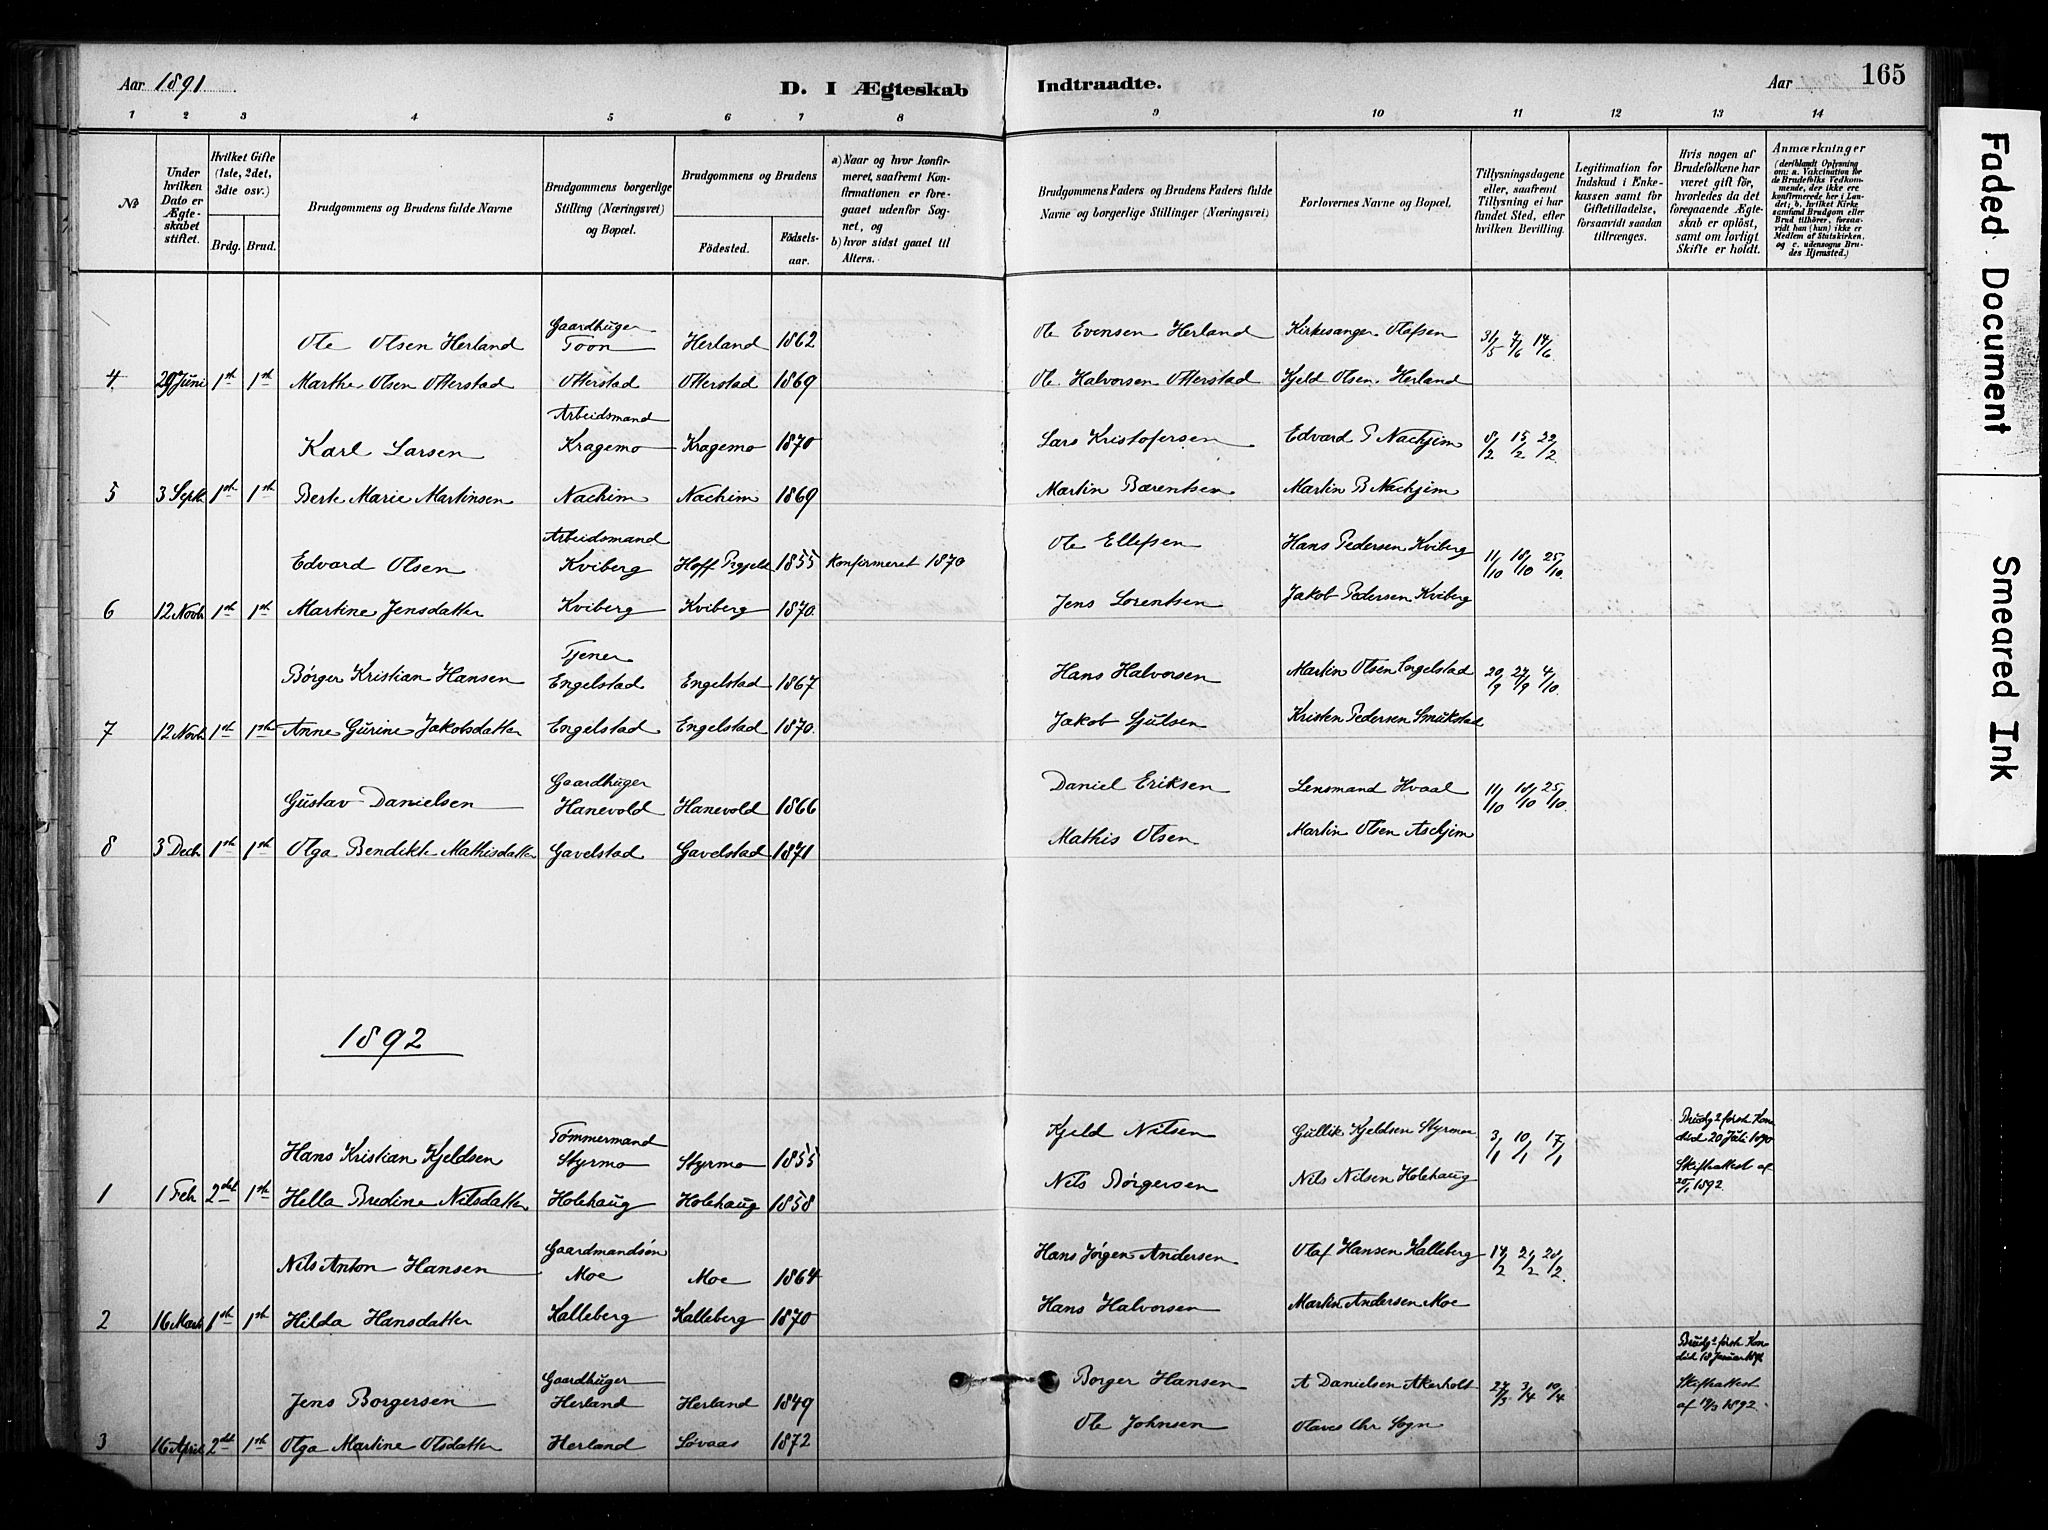 Aar 1891
D. I Ægteskab Indtraadte.
Aar
165
1 2 3 4 5 6 7 8 9 10 11 12 13 14
No
Under hvilken Dato er Ægteskabet stiftet.
Hvilket Gifte (1ste, 2det, 3die osv.)
Brdg. Brud.
Brudgommens og Brudens fulde Navne
Brudgommens borgerlige Stilling (Næringsvei) og Bopæl.
Brudgommens og Brudens
Födested.
Födselsaar.
a) Naar og hvor konfirmeret, saafremt Konfirmationen er foregaaet udenfor Sognet, og
b) hvor sidst gaaet til Alters.
Brudgommens Faders og Brudens Faders fulde Navne og borgerlige Stillinger (Næringsvei)
Forlovernes Navne og Bopæl.
Tillysningsdagene eller, saafremt Tillysning ei har fundet Sted, efter hvilken Bevilling.
Legitimation for Indskud i Enkekassen samt for Giftetilladelse, forsaavidt saadan tiltrænges.
Hvis nogen af Brudefolkene har været gift för, hvorledes da det foregaaende Ægteskab er oplöst, samt om lovligt Skifte er holdt.
Anmærkninger
(deriblandt Oplysning om: a. Vakcination for de Brudefolks Vedkommende, der ikke ere konfirmerede her i Landet; b. hvilket Kirkesamfund Brudgom eller Brud tilhörer, forsaavidt han (hun) ikke er Medlem af Statskirken, og c. udensogns Brudes Hjemsted.)
Gaardbuger
Ole Olsen Herland Toon Herland 1862 Ole Evensen Herland Kirkesanger Olafsen 31/5 7/6 14/6
4. 29 Juni 1ste 1ste Marthe Olsen Otterstad Otterstad Otterstad 1869 Ole Halvorsen Otterstad Kjeld Olsen Herland
Arbeidsmand
Karl Larsen Kragemo Kragemo 1870 Lars Kristofersen Edvard P Nachjim 8/2 15/2 22/2
5 3 Septr 1ste 1ste Berte Marie Martinsen Nachim Nachim 1869 Martin Bærentsen Martin B Nachjim
Arbeidsmand
Edvard Olsen Kviberg Hoff Prgjeld 1855 Konfirmeret 1870 Ole Ellefsen Hans Pedersen Kviberg 11/10 18/10 25/10
6 12 Novbr 1ste 1ste Martine Jensdatter Kviberg Kviberg 1870. Jens Lorentsen Jakob Pedersen Kviberg
Tjener
Børger Kristian Hansen Engelstad Engelstad 1867 Hans Halvorsen Martin Olsen Engelstad 20/9 27/9 4/10
7 12 Novb 1ste 1ste Anne Gurine Jakobsdatter Engelstad Engelstad 1870. Jakob Gjulsen Kristen Pedersen Smukstad
Gaardbuger
Gustav Danielsen Hanevold Hanevold 1866 Daniel Eriksen Lensmand Hvaal 11/10 18/10 25/10
8 3 Decb 1ste 1ste Olga Bendikte Mathisdatter Gavelstad Gavelstad 1871 Mathis Olsen Martin Olsen Askjim
1892
Tømmermand
Hans Kristian Kjeldsen Styrmo Styrmo 1855 Kjeld Nilsen Gullik Kjeldsen Styrmo 3/1 10/1 17/1 Brudg: første Kone død 20 Juli 1890
1 1 Feb 2det 1ste Hella Bredine Nilsdatter Holehaug Holehaug 1858 Nils Børgersen Nils Nilsen Holehaug Skifteattest af 1892.
Gaardmandsøn
Nils Anton Hansen Moe Moe 1864 Hans Jørgen Andersen Olaf Hansen Kalleberg 14/2 21/2 28/2
2 16 Marts 1ste 1ste Hilda Hansdatter Kalleberg Kalleberg 1870 Hans Halvorsen Martin Andersen Moe
Gaardbuger
Jens Borgersen Herland Herland 1849 Borger Hansen A Danielsen Akerholt 27/3 3/4 10/4 Brudgs første Kone død 18 Januar
3 16 April 2det 1ste Olga Martine Olsdatter Herland Løvaas 1872 Ole Johnsen Olaves Chr Sogn Skifteattest af 1892.
Faded Document
Smeared Ink